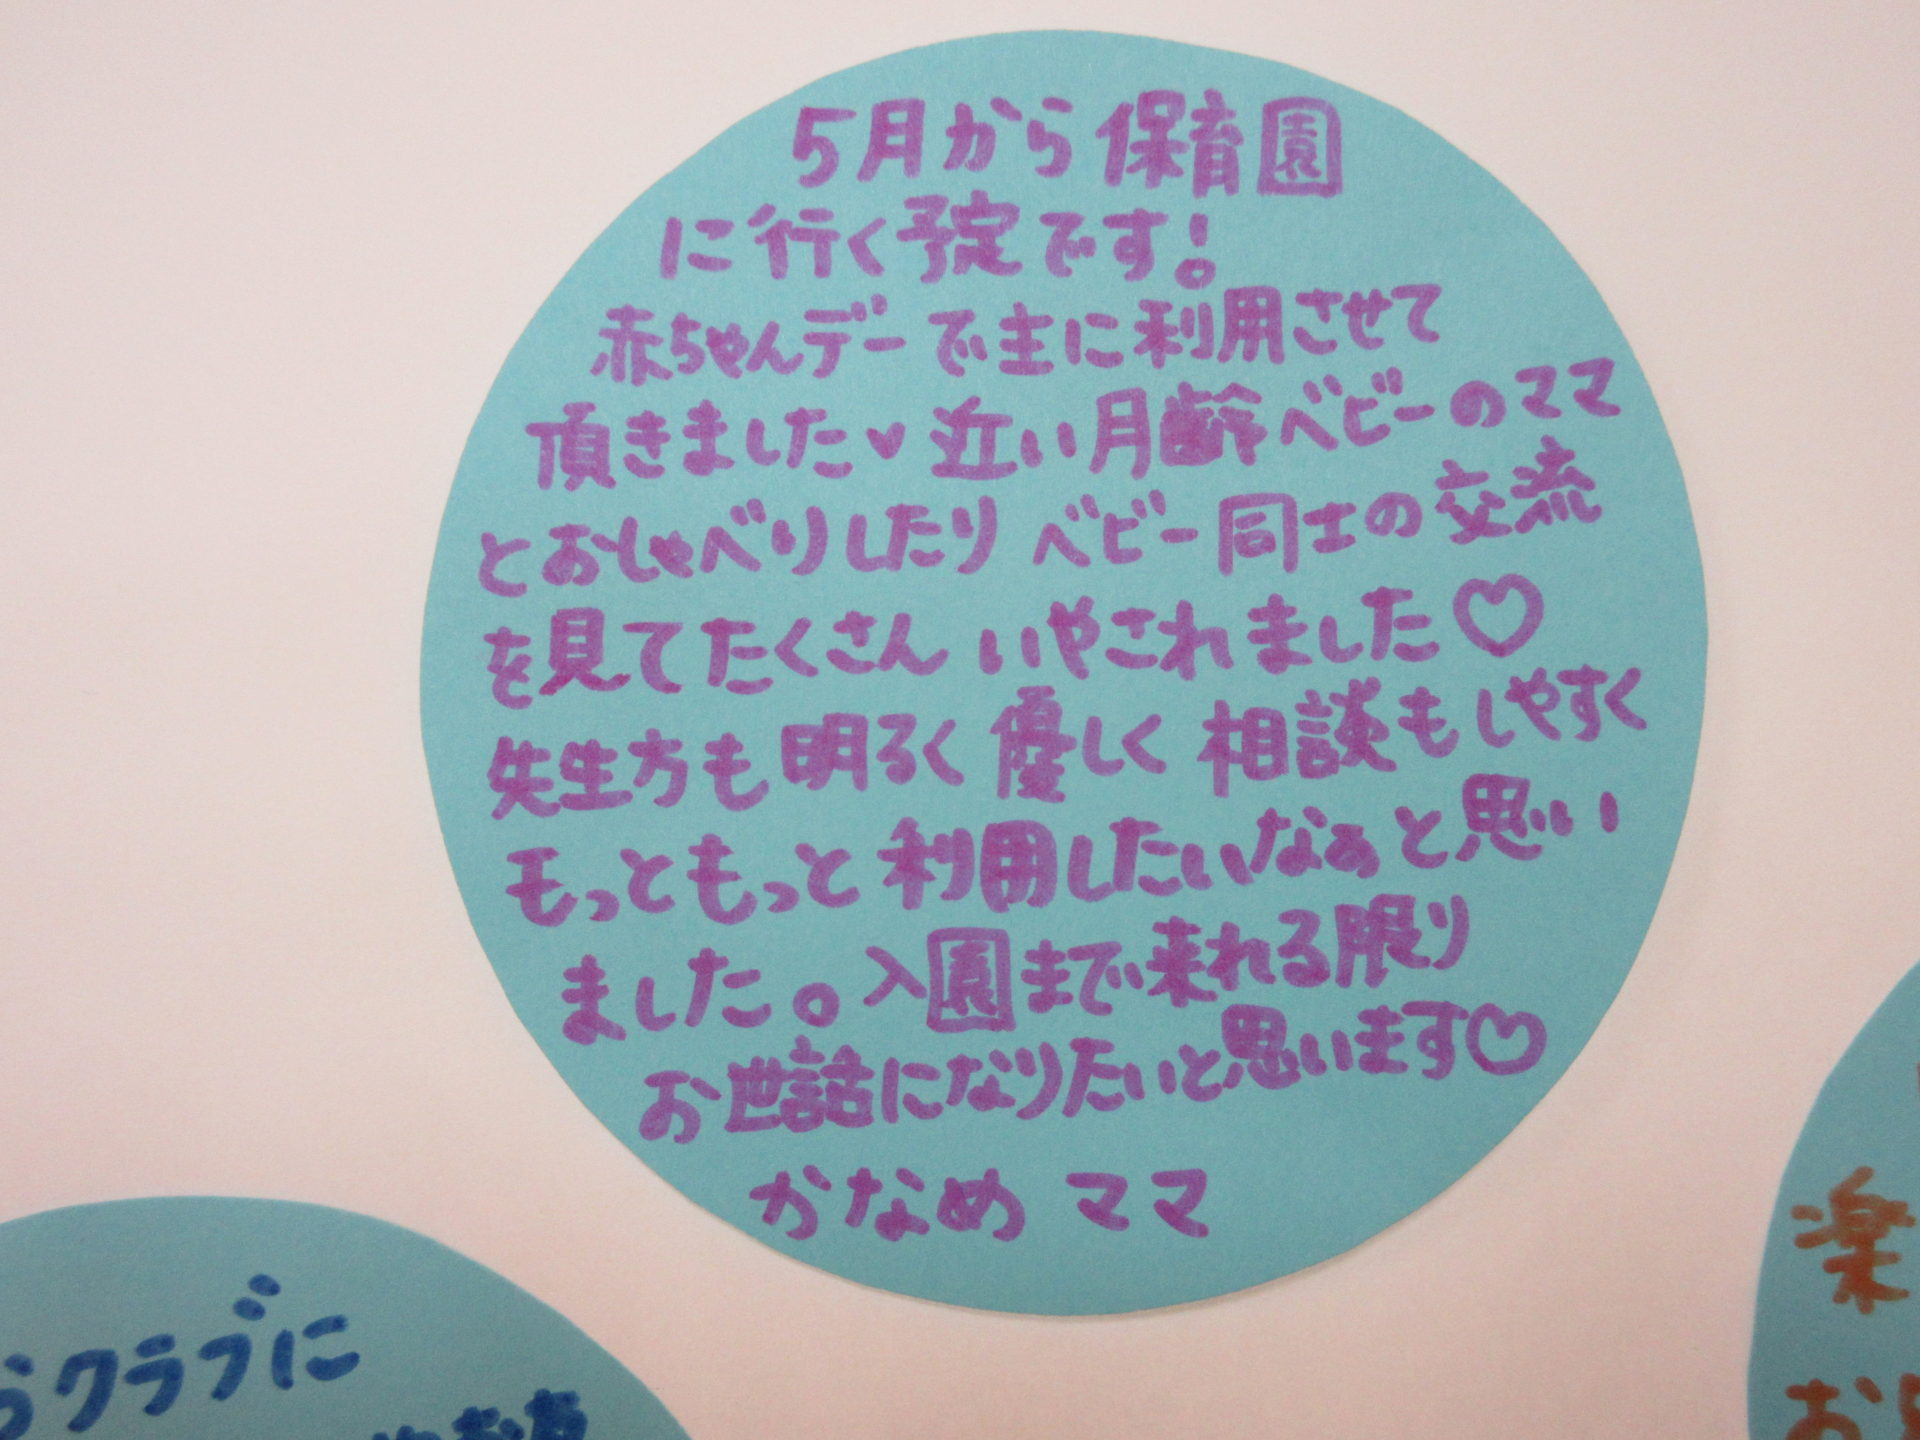 5月から保育園
に行く予定です!
赤ちゃんデーで主に利用させて
頂きました♥近い月齢ベビーのママ
とおしゃべりしたりベビー同士の交流
を見てたくさんいやされました♡
先生方も明るく優しく相談もしやすく
もっともっと利用したいなぁと思い
ました。入園まで来れる限り
お世話になりたいと思います♡
かなめママ
クラブに
楽
お